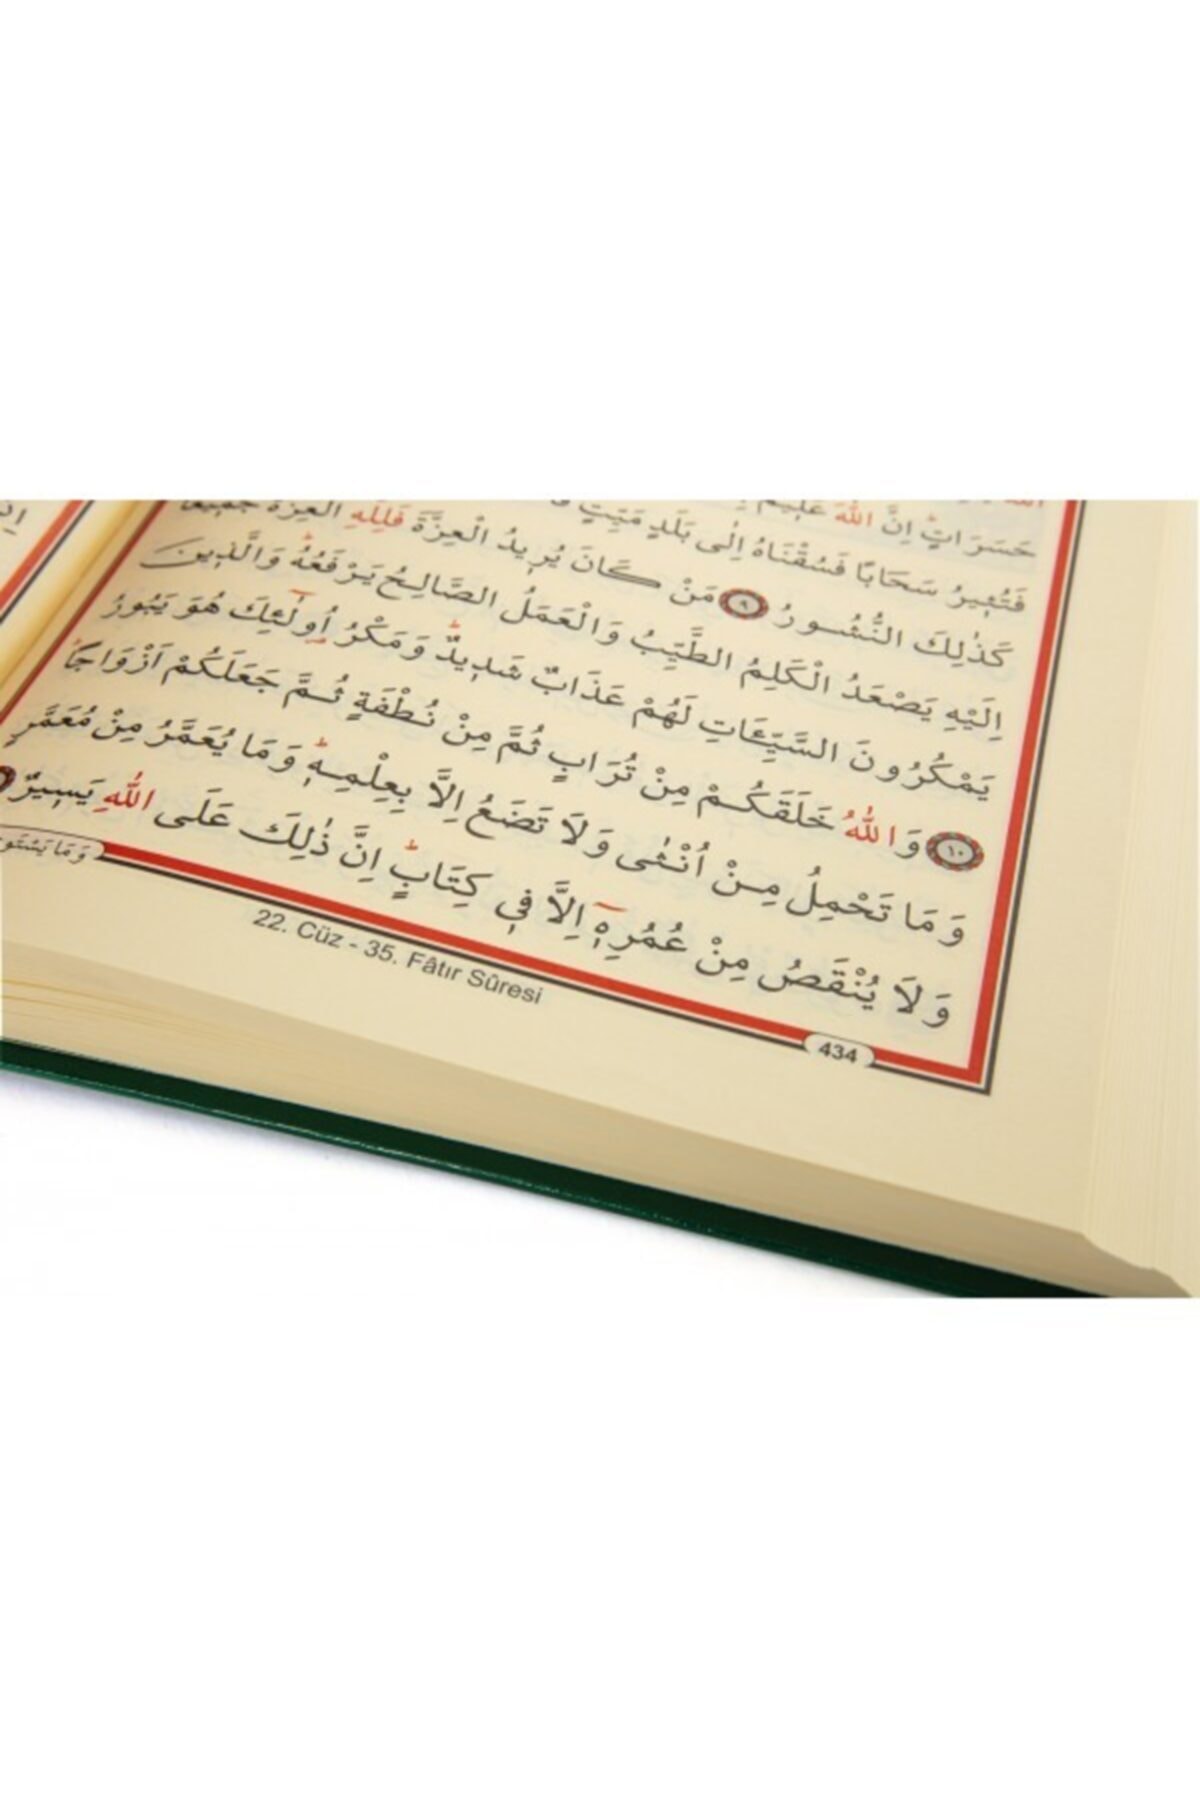 حَسَرَاتٍ اِنَّ اللّٰهَ عَلِيمٌ
فَتُثِيرُ سَحَابًا فَسُقْنَاهُ اِلٰى بَلَدٍ مَيِّتٍ
كَذٰلِكَ النُّشُورُ ٩ مَنْ كَانَ يُرِيدُ الْعِزَّةَ فَلِلّٰهِ الْعِزَّةُ جَمِيعًا
اِلَيْهِ يَصْعَدُ الْكَلِمُ الطَّيِّبُ وَالْعَمَلُ الصَّالِحُ يَرْفَعُهُ وَالَّذِينَ
يَمْكُرُونَ السَّيِّـَٔاتِ لَهُمْ عَذَابٌ شَدِيدٌ وَمَكْرُ اُولٰٓئِكَ هُوَ يَبُورُ
١٠ وَاللّٰهُ خَلَقَكُمْ مِنْ تُرَابٍ ثُمَّ مِنْ نُطْفَةٍ ثُمَّ جَعَلَكُمْ اَزْوَاجًا
وَمَا تَحْمِلُ مِنْ اُنْثٰى وَلَا تَضَعُ اِلَّا بِعِلْمِهِ وَمَا يُعَمَّرُ مِنْ مُعَمَّرٍ
وَلَا يُنْقَصُ مِنْ عُمُرِهِٓ اِلَّا فِي كِتَابٍ اِنَّ ذٰلِكَ عَلَى اللّٰهِ يَسِيرٌ
وَمَا يَسْتَوِي
434
22. Cüz - 35. Fâtır Sûresi